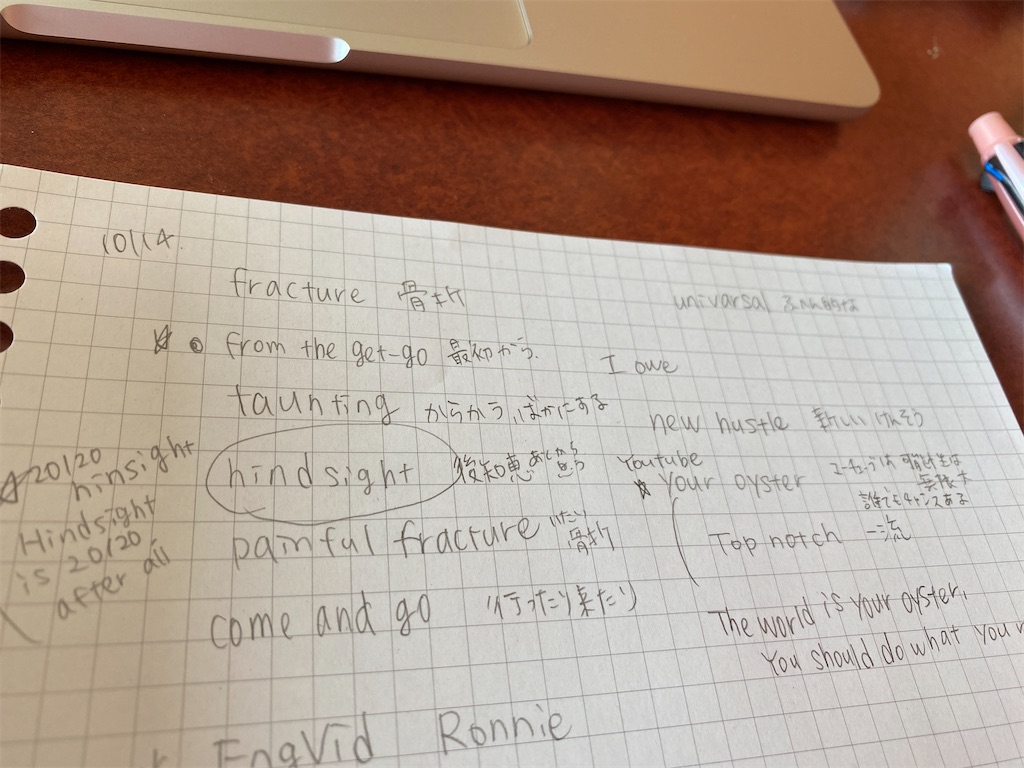 10/14
fracture 骨折
univarsal
from the get-go 最初から.
I owe
taunting からかう, ばかにする
new hustle 新しい
20/20
hinsight
Hindsight
is 20/20
after all
hindsight 後知恵
Youtube
Your oyster
誰でもチャンスある
painful fracture 骨折
Top notch 一流
come and go 行ったり来たり
The world is your oyster,
You should do what your
EngVid Ronnie